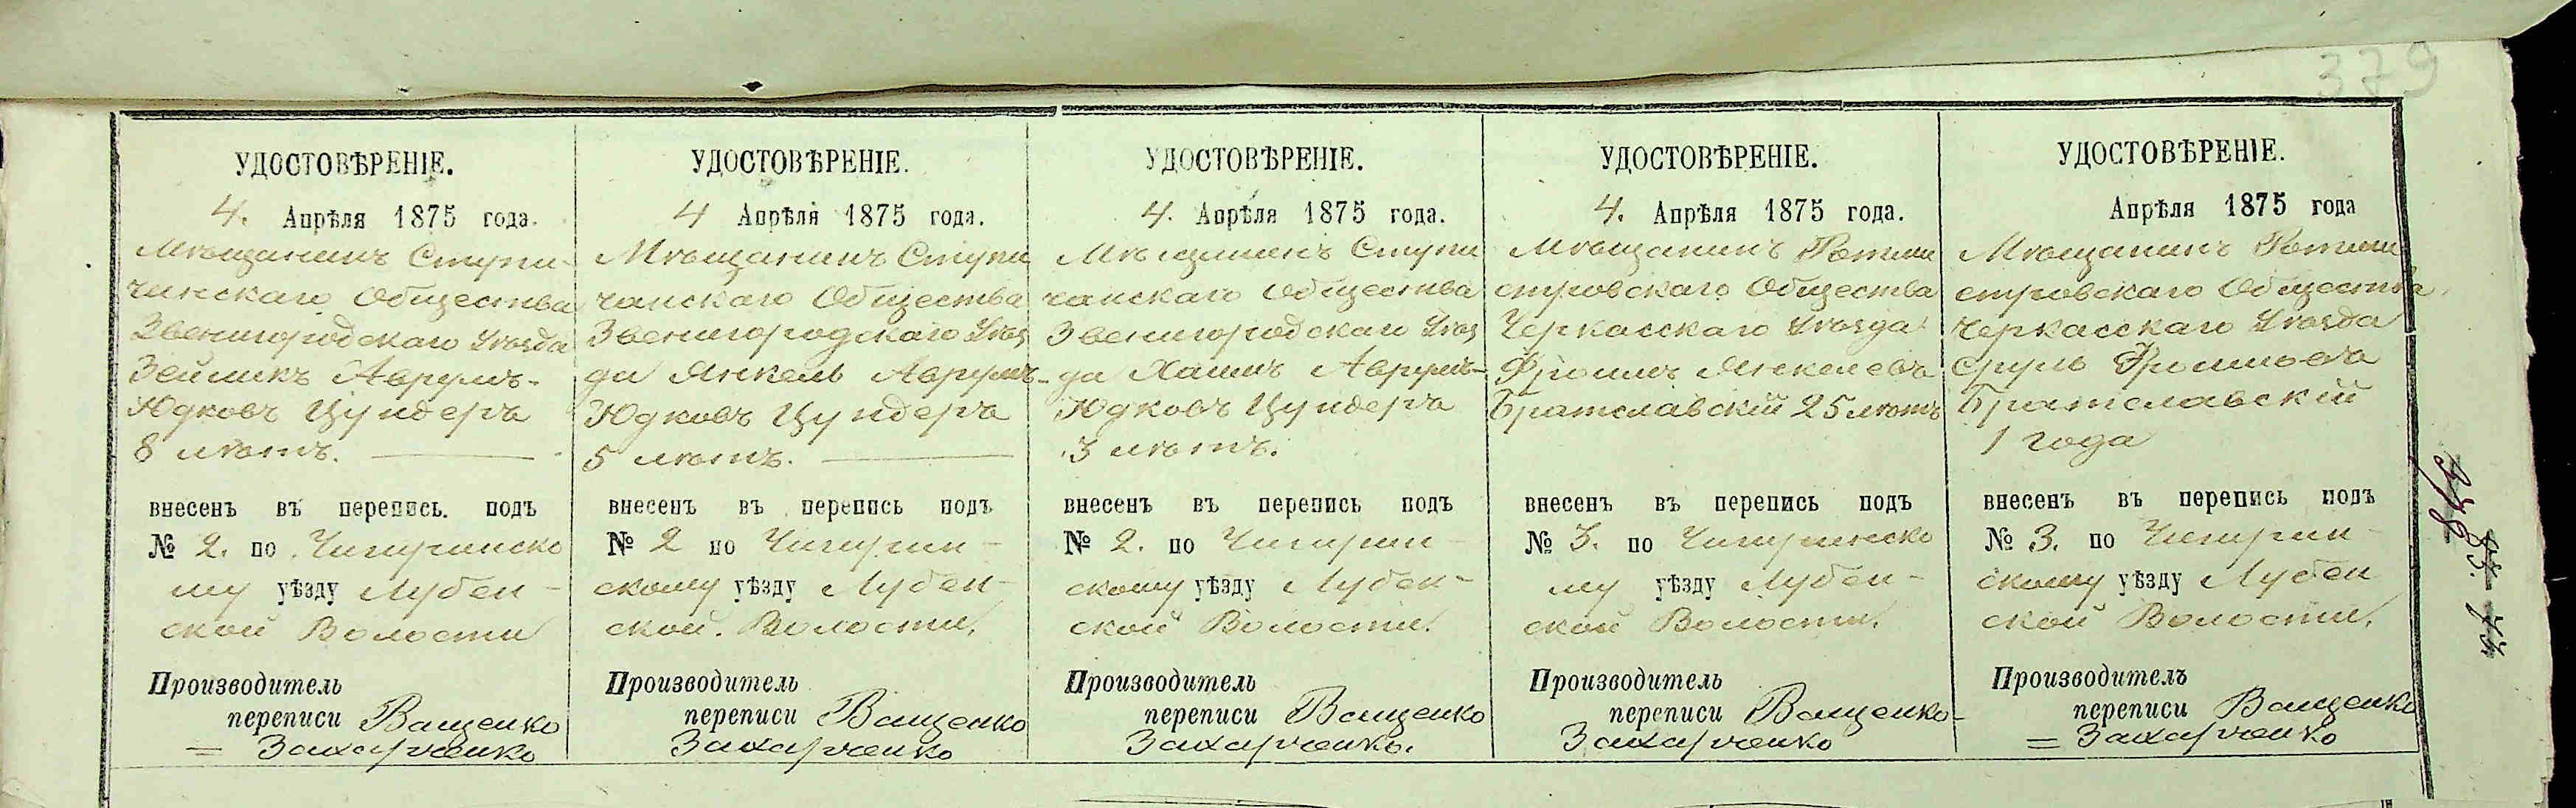 379
УДОСТОВѢРЕНІЕ.
4. Апрѣля 1875 года.
Мѣщанинъ Ступи-
чинскаго Общества
Звенигородскаго Уѣзда
Зейликъ Аврумъ-
Юдковъ Цундеръ
8 лѣтъ.
внесенъ въ перепись. подъ
№ 2. по Чигиринско
му уѣзду Лубен-
ской Волости
Производитель
переписи Ващенко
= Захарченко
УДОСТОВѢРЕНІЕ.
4 Апрѣля 1875 года.
Мѣщанинъ Ступи
чанскаго Общества
Звенигородскаго Уѣз
да Янкель Аврумъ-
Юдковъ Цундеръ
5 лѣтъ.
внесенъ въ перепись подъ
№ 2 по Чигирин-
скому уѣзду Лубен-
ской. Волости,
Производитель
переписи Ващенко
Захарченко
УДОСТОВѢРЕНІЕ.
4. Апрѣля 1875 года.
Мѣщанинъ Ступи
чанскаго Общества
Звенигородскаго Уѣз
да Хаимъ Аврумъ-
Юдковъ Цундеръ
3 лѣтъ.
внесенъ въ перепись подъ
№ 2. по Чигирин-
скому уѣзду Лубен-
ской Волости.
Производитель
переписи Ващенко
Захарченко.
УДОСТОВѢРЕНІЕ.
4. Апрѣля 1875 года.
Мѣщанинъ Ротми
стровскаго Общества
Черкасскаго Уѣзда
Фроимъ Янкелевъ
Братславскій 25 лѣтъ
внесенъ въ перепись подъ
№ 3. по Чигиринско
му уѣзду Лубен-
ской Волости,
Производитель
переписи Ващенко-
Захарченко
УДОСТОВѢРЕНІЕ.
Апрѣля 1875 года
Мѣщанинъ Ротми
стровскаго Общества,
Черкасскаго Уѣзда
Сруль Фроимовъ
Братславскій
1 года
внесенъ въ перепись подъ
№ 3. по Чигирин-
скому уѣзду Лубен
ской Волости,
Производитель
переписи Ващенко
= Захарченко